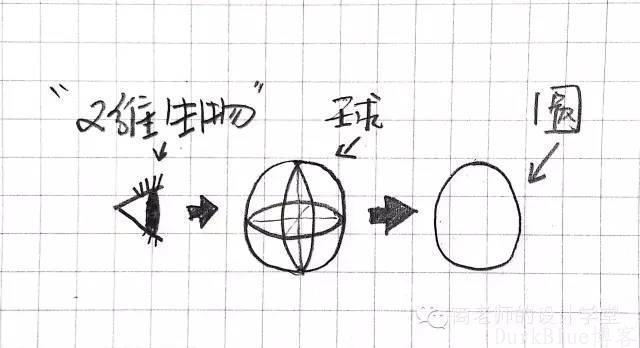 “2维生物”
球
圆
高老师的设计学堂
DurkBlue博客